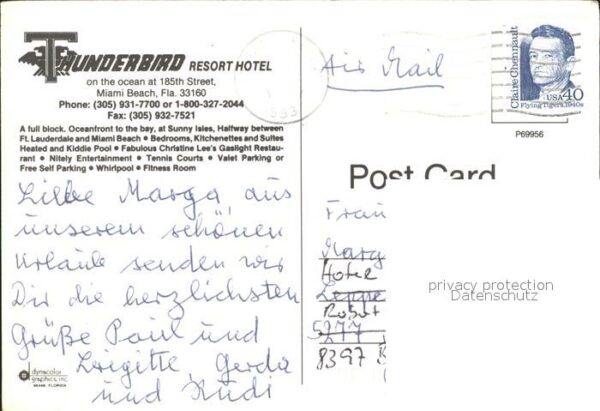 THUNDERBIRD RESORT HOTEL
on the ocean at 185th Street,
Miami Beach, Fla. 33160
Phone: (305) 931-7700 or 1-800-327-2044
Fax: (305) 932-7521
A full block. Oceanfront to the bay, at Sunny Isles, Halfway between
Ft. Lauderdale and Miami Beach • Bedrooms, Kitchenettes and Suites
Heated and Kiddie Pool • Fabulous Christine Lee's Gaslight Restau-
rant • Nitely Entertainment • Tennis Courts • Valet Parking or
Free Self Parking • Whirlpool • Fitness Room
Liebe Marga, aus
unserem schönen
Urlaub senden wir
Dir die herzlichsten
Grüße Paul und
Brigitte, Gerda
und Rudi
dynacolor
graphics, inc.
MIAMI, FLORIDA
Air Mail
Claire Chennault
Flying Tigers, 1940s
USA 40
P69956
Post Card
Frau
Marg
Hotel
Robert
5277
8397 B
privacy protection
Datenschutz